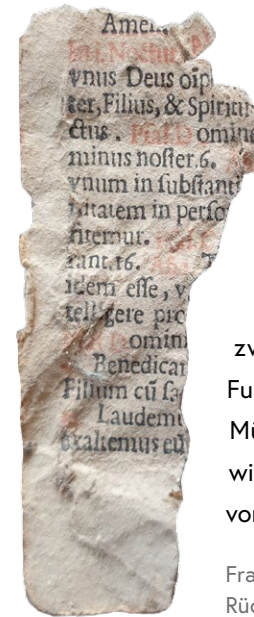 Amen.
In i. Noctur
vnus Deus oip
ter, Filius, & Spiritu
ctus. Pſal. D omine
minus noſter. 6.
vnum in ſubſtant
nitatem in perſo
fitemur.
rant. 16. T
idem eſſe, v
telligere pro
omni
Benedicat
Filium cũ ſa
Laudemu
exaltemus eũ
zw
Fu
Mü
wi
vor
Fra
Rüc